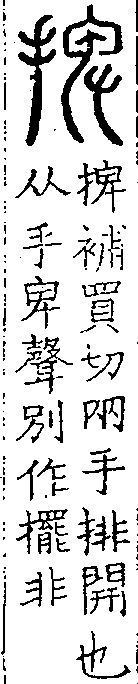 捭
捭補買切兩手排開也
从手卑聲別作擺非